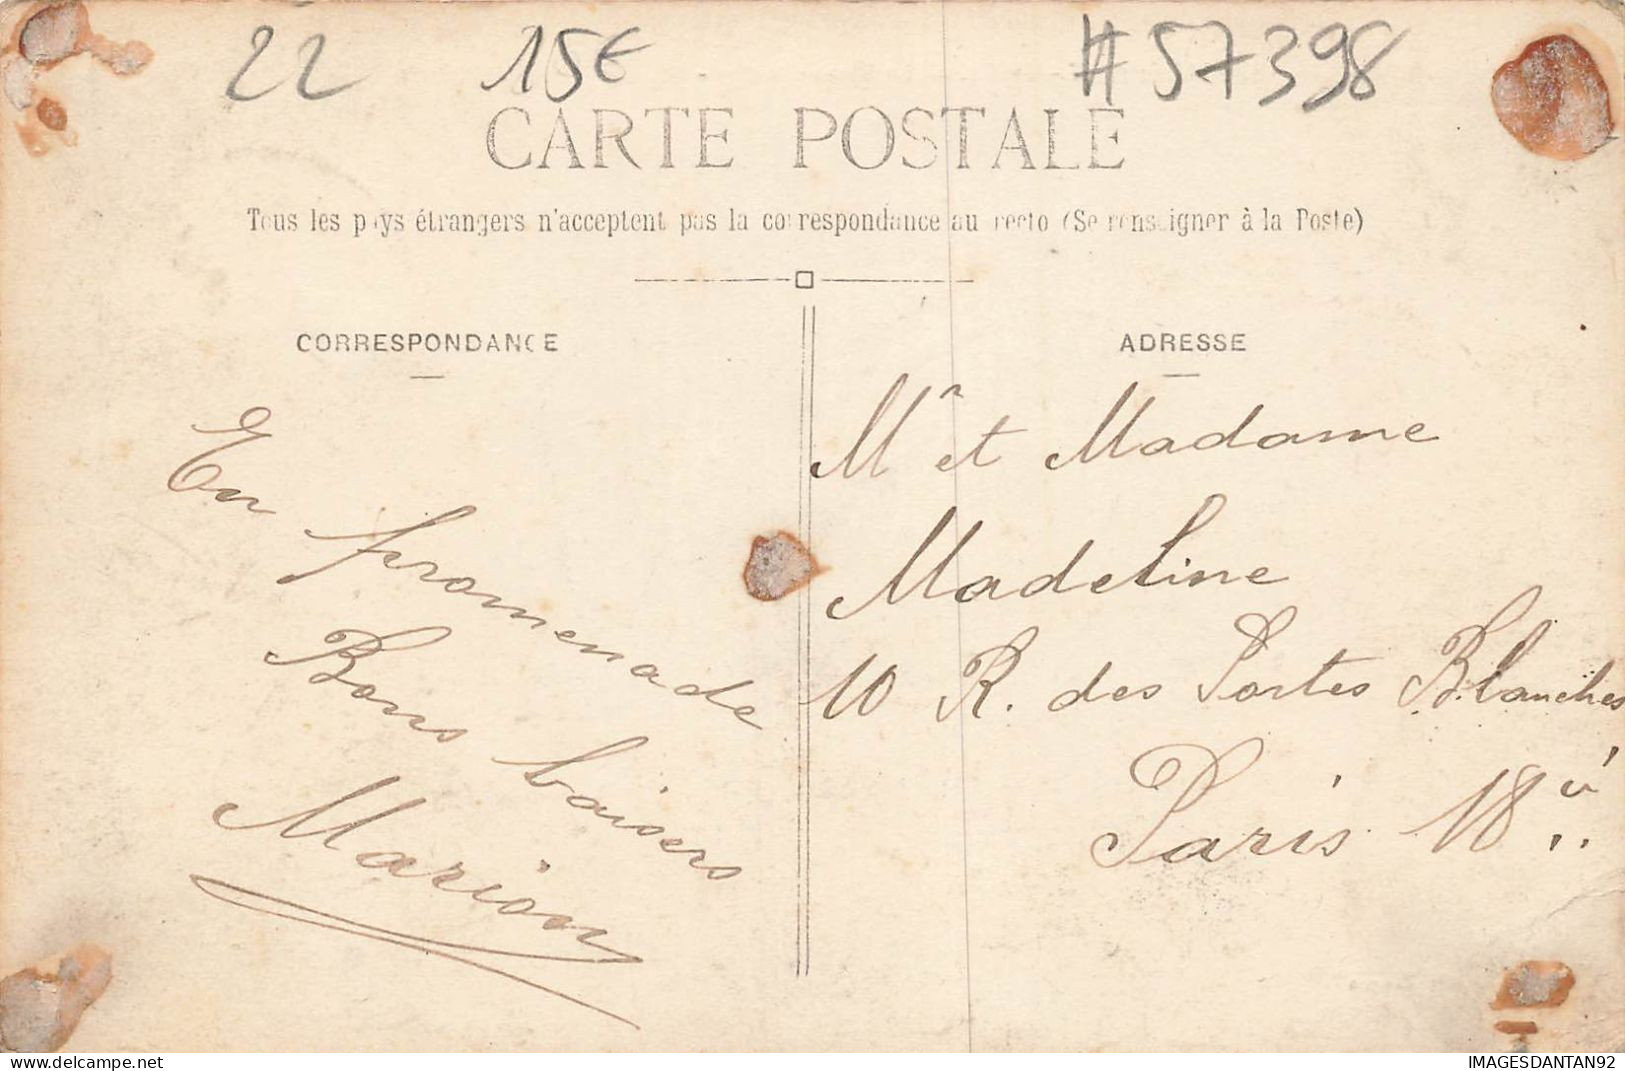 22 15€ #57398
CARTE POSTALE
Tous les pays étrangers n'acceptent pas la correspondance au recto (Se renseigner à la Poste)
CORRESPONDANCE
En promenade
Bons baisers
Marion
ADRESSE
Mr et Madame
Madeline
10 R. des Portes Blanches
Paris 18è
delcampe.net
IMAGESDANTAN92